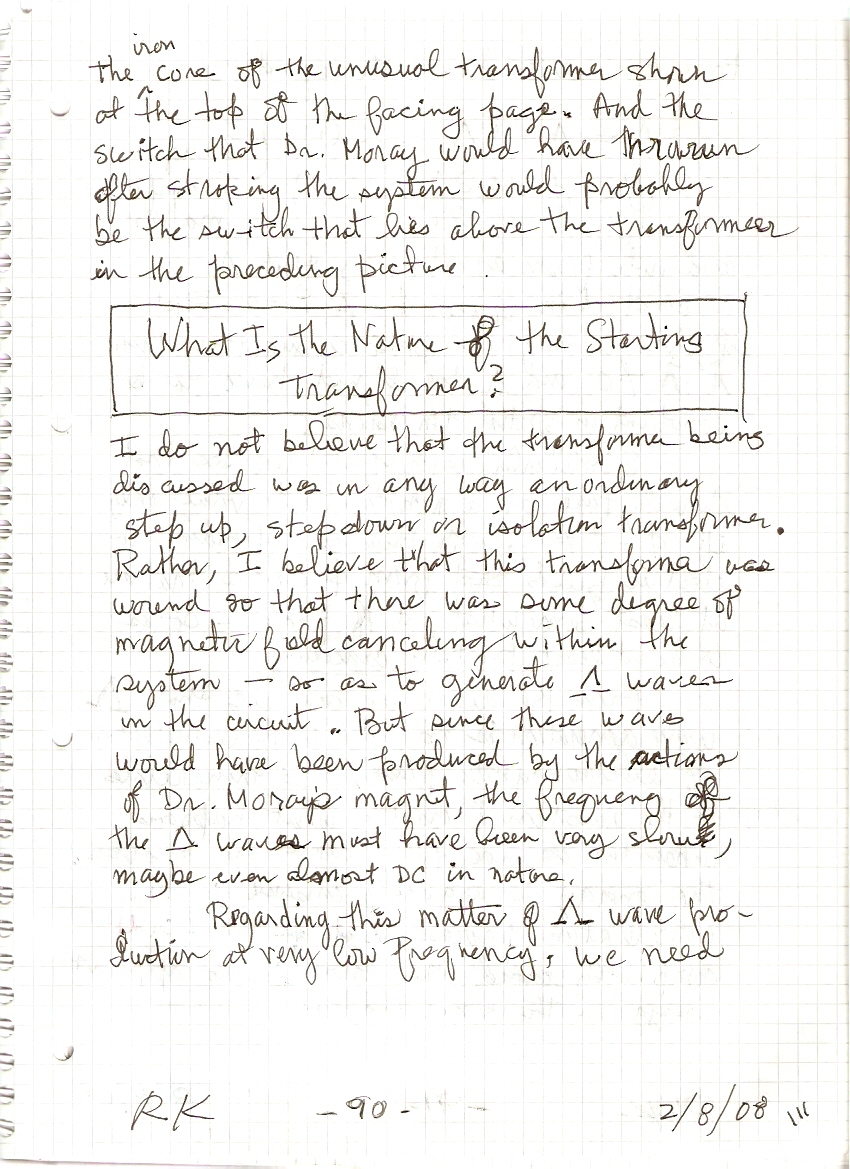 iron
the ^ core of the unusual transformer shown
at the top of the facing page. And the
switch that Dr. Moray would have thrown
after stroking the system would probably
be the switch that lies above the transformer
in the preceding picture.
What Is the Nature of the Starting
Transformer?
I do not believe that the transformer being
discussed was in any way an ordinary
step up, step down or isolation transformer.
Rather, I believe that this transformer was
wound so that there was some degree of
magnetic field canceling within the
system – so as to generate Λ waves
in the circuit. But since these waves
would have been produced by the actions
of Dr. Moray's magnet, the frequency of
the Λ waves must have been very slow,
maybe even almost DC in nature.
Regarding this matter of Λ wave pro-
duction at very low frequency, we need
RK - 90 - 2/8/08